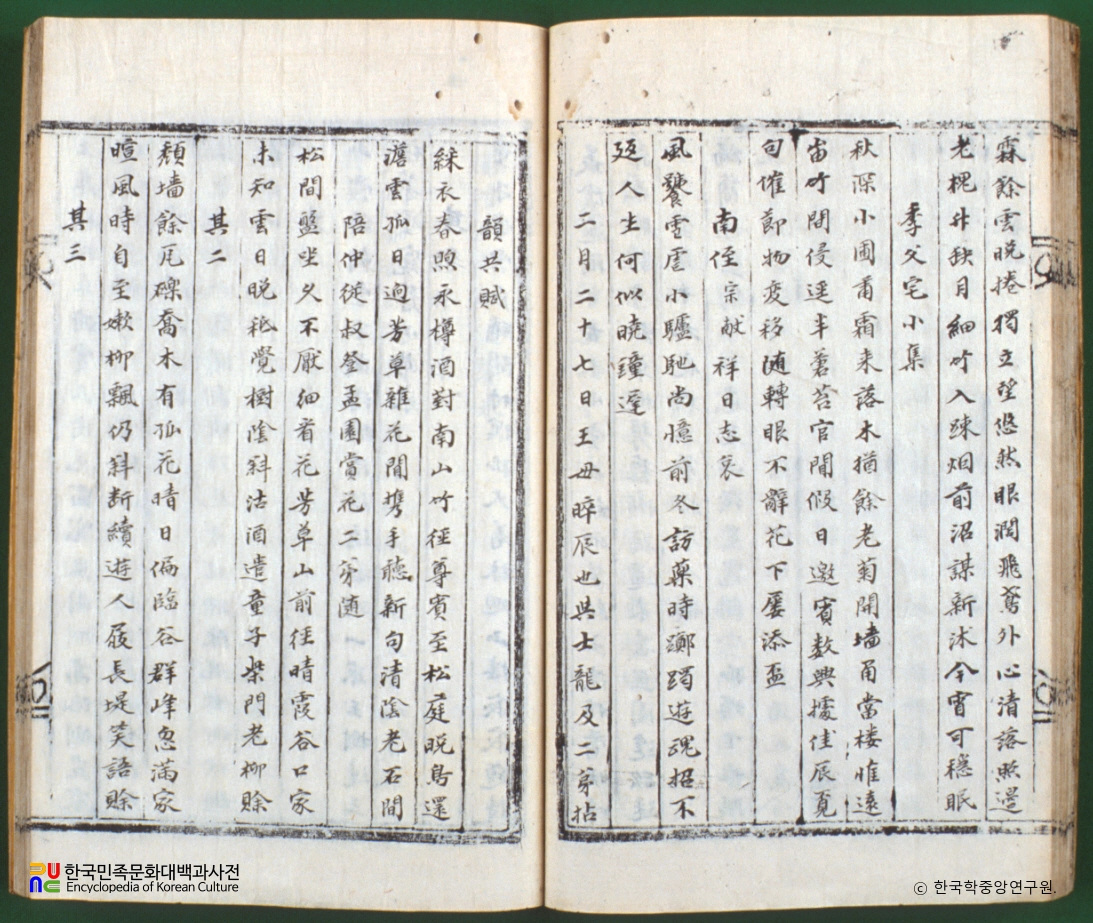 霖餘雲晩捲獨立望悠然眼濶飛鳶外心清落照邊
老槐升缺月細竹入疎烟前沼謀新沐今宵可穩眠
季父宅小集
秋深小圃胃霜来落木猶餘老菊開墻角當楼惟遠
岫竹間侵逕半蒼苔官閒假日邀賓數興擾佳辰覓
句催節物変移随轉眼不辭花下屡添盃
南侄宗献祥日志哀
風饕雪虐小驢馳尚憶前冬訪藥時躑躅遊魂招不
返人生何似曉鐘遲
二月二十七日王母晬辰也與士龍及二弟拈
韻共賦
綵衣春煦永樽酒對南山竹徑尊賓至松庭晩鳥還
澹雲孤日逈芳草雜花閒携手聴新句清陰老石間
陪仲従叔登孟園賞花二弟随
松間盤坐久不厭細看花芳草山前徃晴霞谷口家
未知雲日晩秪覺樹陰斜沽酒遣童子柴門老柳賒
其二
頹墻餘瓦礫喬木有孤花晴日偏臨谷群峰忽滿家
暄風時自至嫰柳飄仍斜断續遊人屐長堤笑語賒
其三
한국민족문화대백과사전
Encyclopedia of Korean Culture
© 한국학중앙연구원.